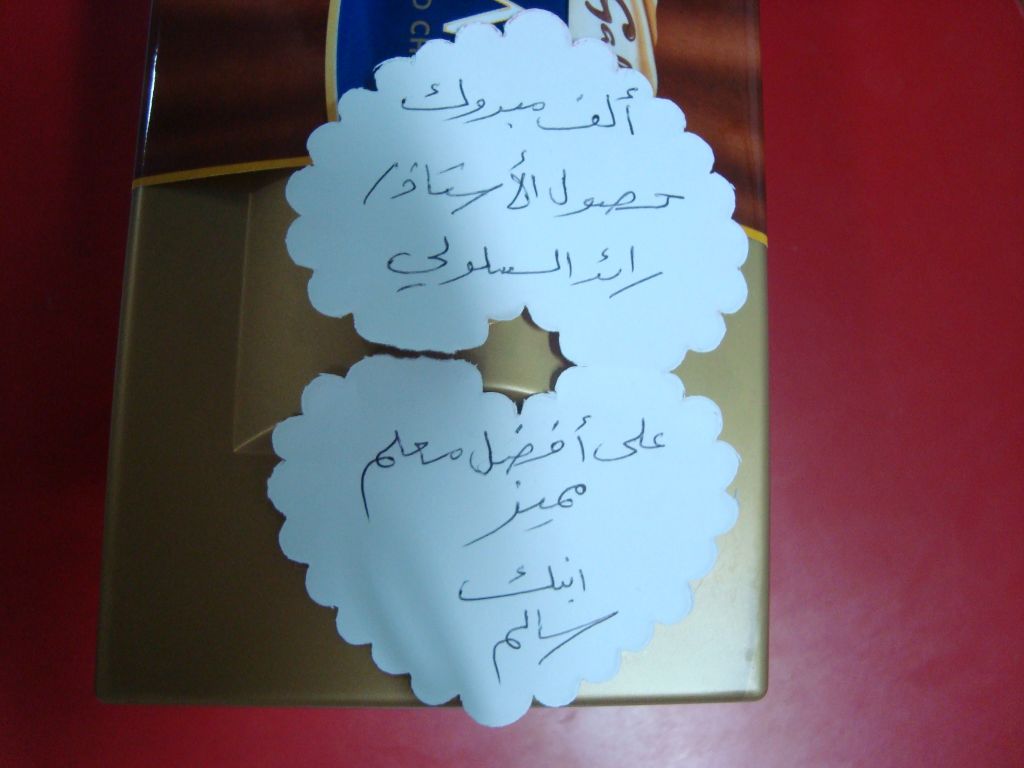 ألف مبروك
حصول الأستاذ/
رائد السلولي
على أفضل معلم
مميز
ابنك
سالم